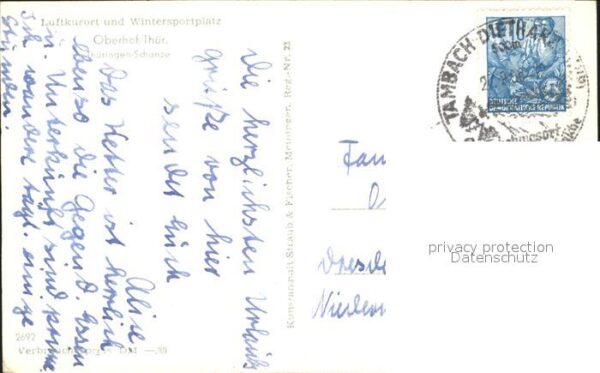 Luftkurort und Wintersportplatz
Oberhof Thür.
Thüringen-Schanze
Die herzlichsten Urlaubs
grüße von hier
sendet Euch
Alice
Das Wetter ist herrlich
ebenso die Gegend. Essen
u. Unterkunft sind prima.
Ich wandere tägl. einige
Stunden.
2692
DM —.20
Kunstanstalt Straub & Fischer, Meiningen, Reg.-Nr. 23
TAMBACH-DIETHARZ
DEUTSCHE
DEMOKRATISCHE REPUBLIK
Fam
Dresde
Nieder
privacy protection
Datenschutz